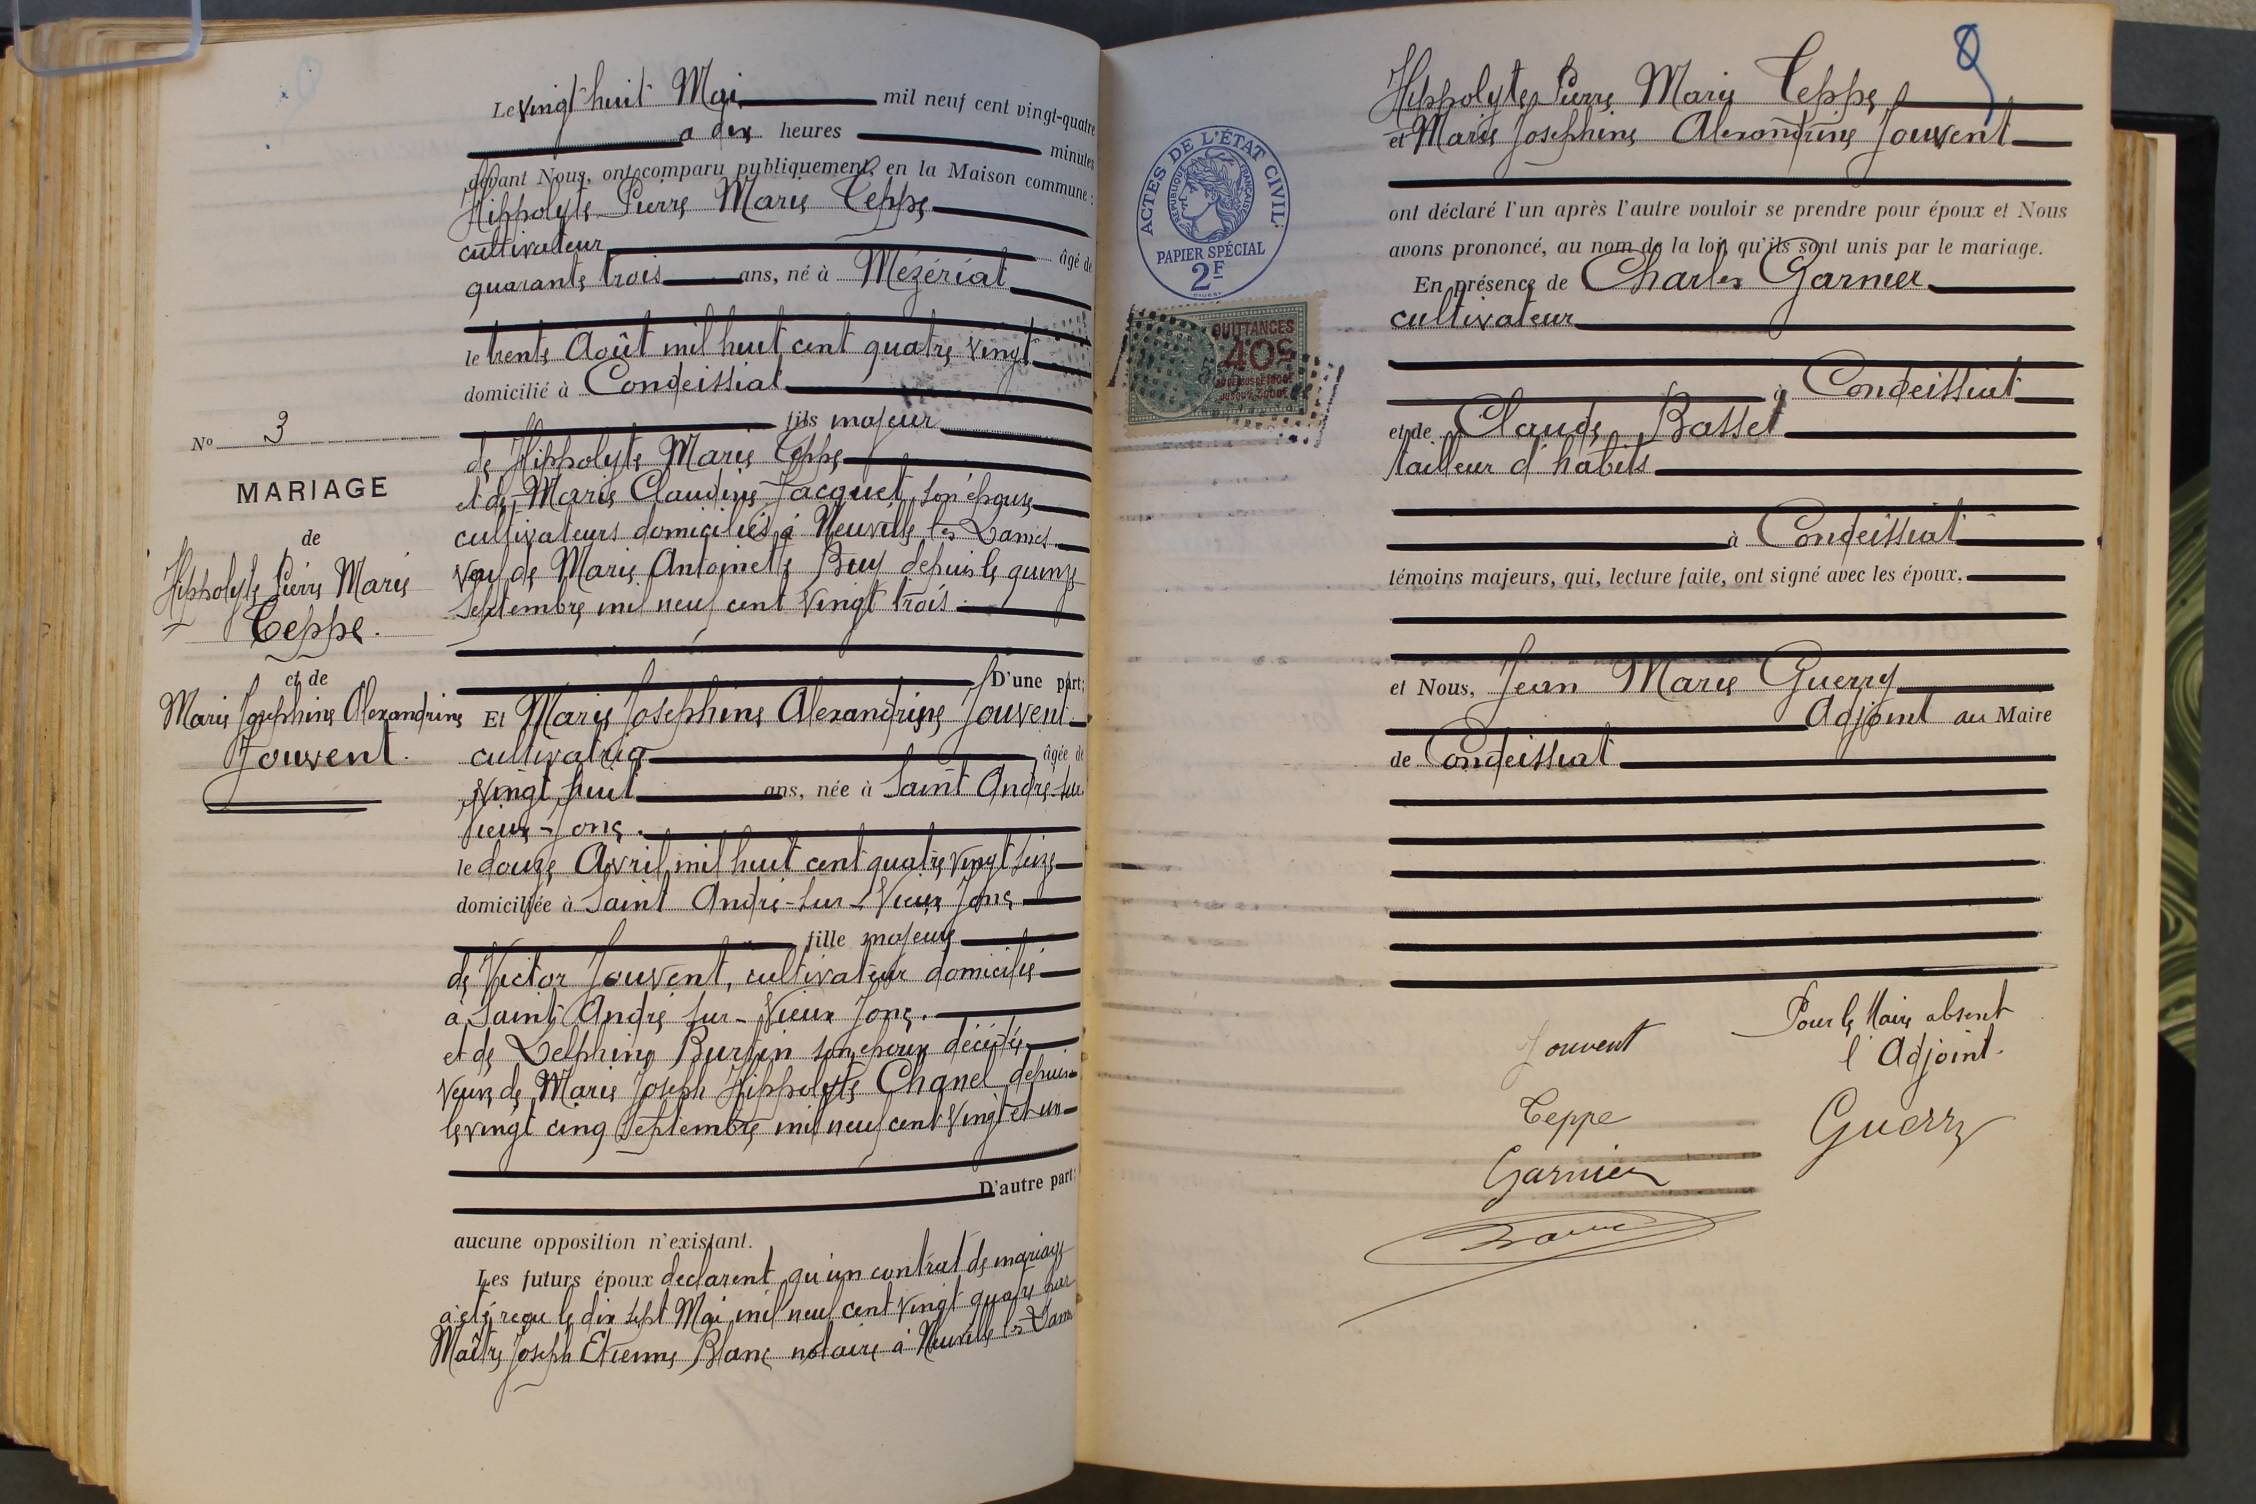 Le vingt huit Mai mil neuf cent vingt-quatre
a dix heures minutes
devant Nous, ont comparu publiquement en la Maison commune :
Hippolyte Pierre Marie Teppe
cultivateur âgé de
quarante trois ans, né à Mézériat
le trente Août mil huit cent quatre vingt
domicilié à Condeissiat
fils majeur
de Hippolyte Marie Teppe
et de Marie Claudine Jacquet, son épouse
cultivateurs domiciliés à Neuville les Dames
veuf de Marie Antoinette Buy depuis le quinze
Septembre mil neuf cent vingt trois
D'une part;
Nº 3
MARIAGE
de
Hippolyte Pierre Marie
Teppe.
et de
Marie Josephine Alexandrine
Jouvent.
Et Marie Josephine Alexandrine Jouvent
cultivatrice âgée de
vingt huit ans, née à Saint André-sur
Vieux-Jonc.
le douze Avril mil huit cent quatre vingt seize
domiciliée à Saint André-sur-Vieux Jonc
fille majeure
de Victor Jouvent, cultivateur domicilié
à Saint André sur-Vieux Jonc.
et de Delphine Burtin son epoux décédée
veuve de Marie Joseph Hippolyte Chanel depuis
le vingt cinq Septembre mil neuf cent vingt et un
D'autre part;
aucune opposition n'existant.
Les futurs époux declarent qu'un contrat de mariage
a été reçu le dix sept Mai mil neuf cent vingt quatre par
Maître Joseph Etienne Blanc notaire à Neuville les Dames
8
Hippolyte Pierre Marie Teppe
et Marie Josephine Alexandrine Jouvent
ont déclaré l'un après l'autre vouloir se prendre pour époux et Nous
avons prononcé, au nom de la loi, qu'ils sont unis par le mariage.
En présence de Charles Garnier
cultivateur
à Condeissiat
et de Claude Basset
tailleur d'habits
à Condeissiat
témoins majeurs, qui, lecture faite, ont signé avec les époux.
et Nous, Jean Marie Guerry
Adjoint au Maire
de Condeissiat
ACTES DE L'ÉTAT CIVIL
RÉPUBLIQUE FRANÇAISE
PAPIER SPÉCIAL
2F
QUITTANCES
40c
Jouvent
Teppe
Garnier
Pour le Maire absent
l'Adjoint.
Guerry